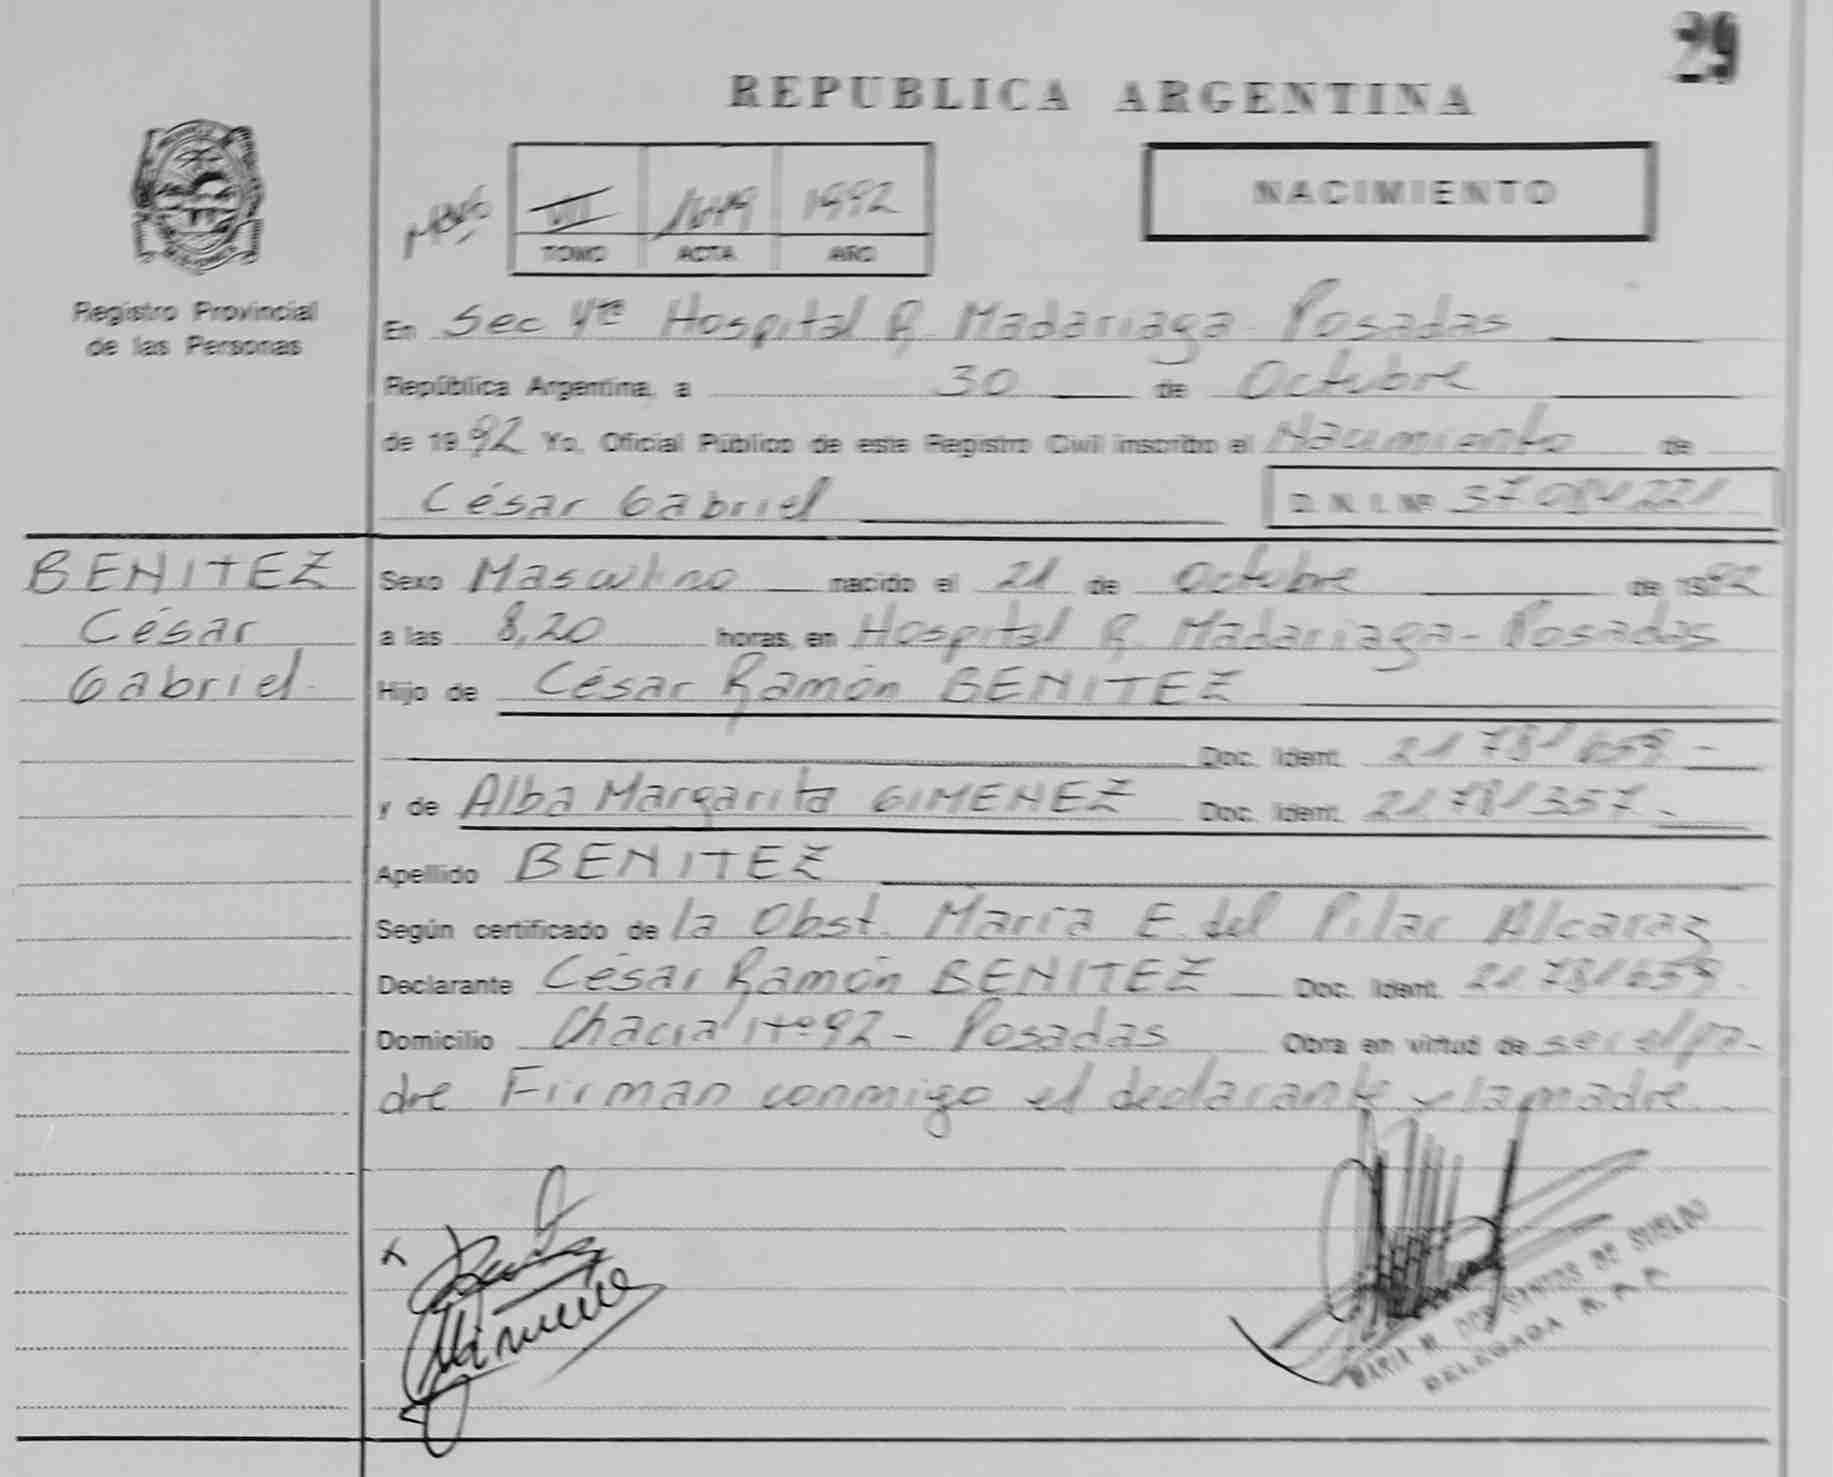 29
REPUBLICA ARGENTINA
NACIMIENTO
VII 1992
TOMO ACTA AÑO
Registro Provincial
de las Personas
En Sec 4ta Hospital R. Madariaga - Posadas
República Argentina, a 30 de Octubre
de 1992 Yo, Oficial Público de este Registro Civil inscribo el Nacimiento de
César Gabriel D. N. I. Nº 37 081 221
BENITEZ
César
Gabriel.
Sexo Masculino nacido el 21 de Octubre de 1992
a las 8,20 horas, en Hospital R. Madariaga - Posadas
Hijo de César Ramón BENITEZ
Doc. Ident. 21 781 659 -
y de Alba Margarita GIMENEZ Doc. Ident. 21 781 357 -
Apellido BENITEZ
Según certificado de la Obst. María E. del Pilar Alcaraz
Declarante César Ramón BENITEZ Doc. Ident. 21 781 659 -
Domicilio Chacra Nº 92 - Posadas Obra en virtud de ser el pa-
dre Firman conmigo el declarante y la madre.
MARIA M. DOS SANTOS DE
DELEGADA